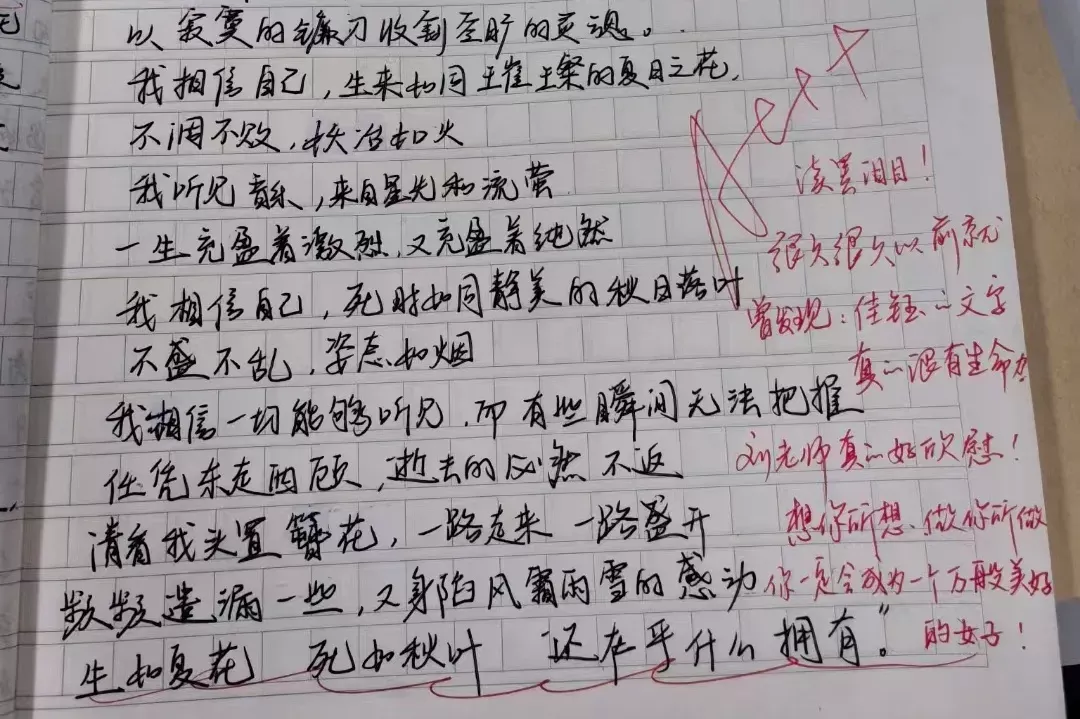 以寂寞的镰刀收割空旷的灵魂。
我相信自己，生来如同璀璨的夏日之花，
不凋不败，妖冶如火
我听见音乐，来自星光和流萤
一生充盈着激烈，又充盈着纯然
我相信自己，死时如同静美的秋日落叶
不盛不乱，姿态如烟
我相信一切能够听见，而有些瞬间无法把握
任凭东走西顾，逝去的必然不返
请看我头置簪花，一路走来一路盛开
频频遗漏一些，又身陷风霜雨雪的感动
生如夏花 死如秋叶 还在乎什么拥有。”
A+++
泪目！
很久很久以前就
曾发现：佳钰的文字
真的很有生命力
刘老师真的好欣慰！
想你所想、做你所做
你一定会成为一个万般美好
的女子！